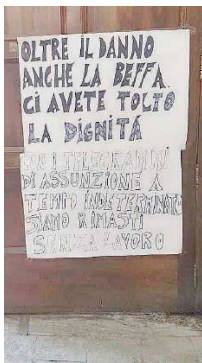 OLTRE IL DANNO
ANCHE LA BEFFA.
CI AVETE TOLTO
LA DIGNITÁ
CON I TELEGRAMMI
DI ASSUNZIONE A
TEMPO INDETERMINATO
SIAMO RIMASTI
SENZA LAVORO